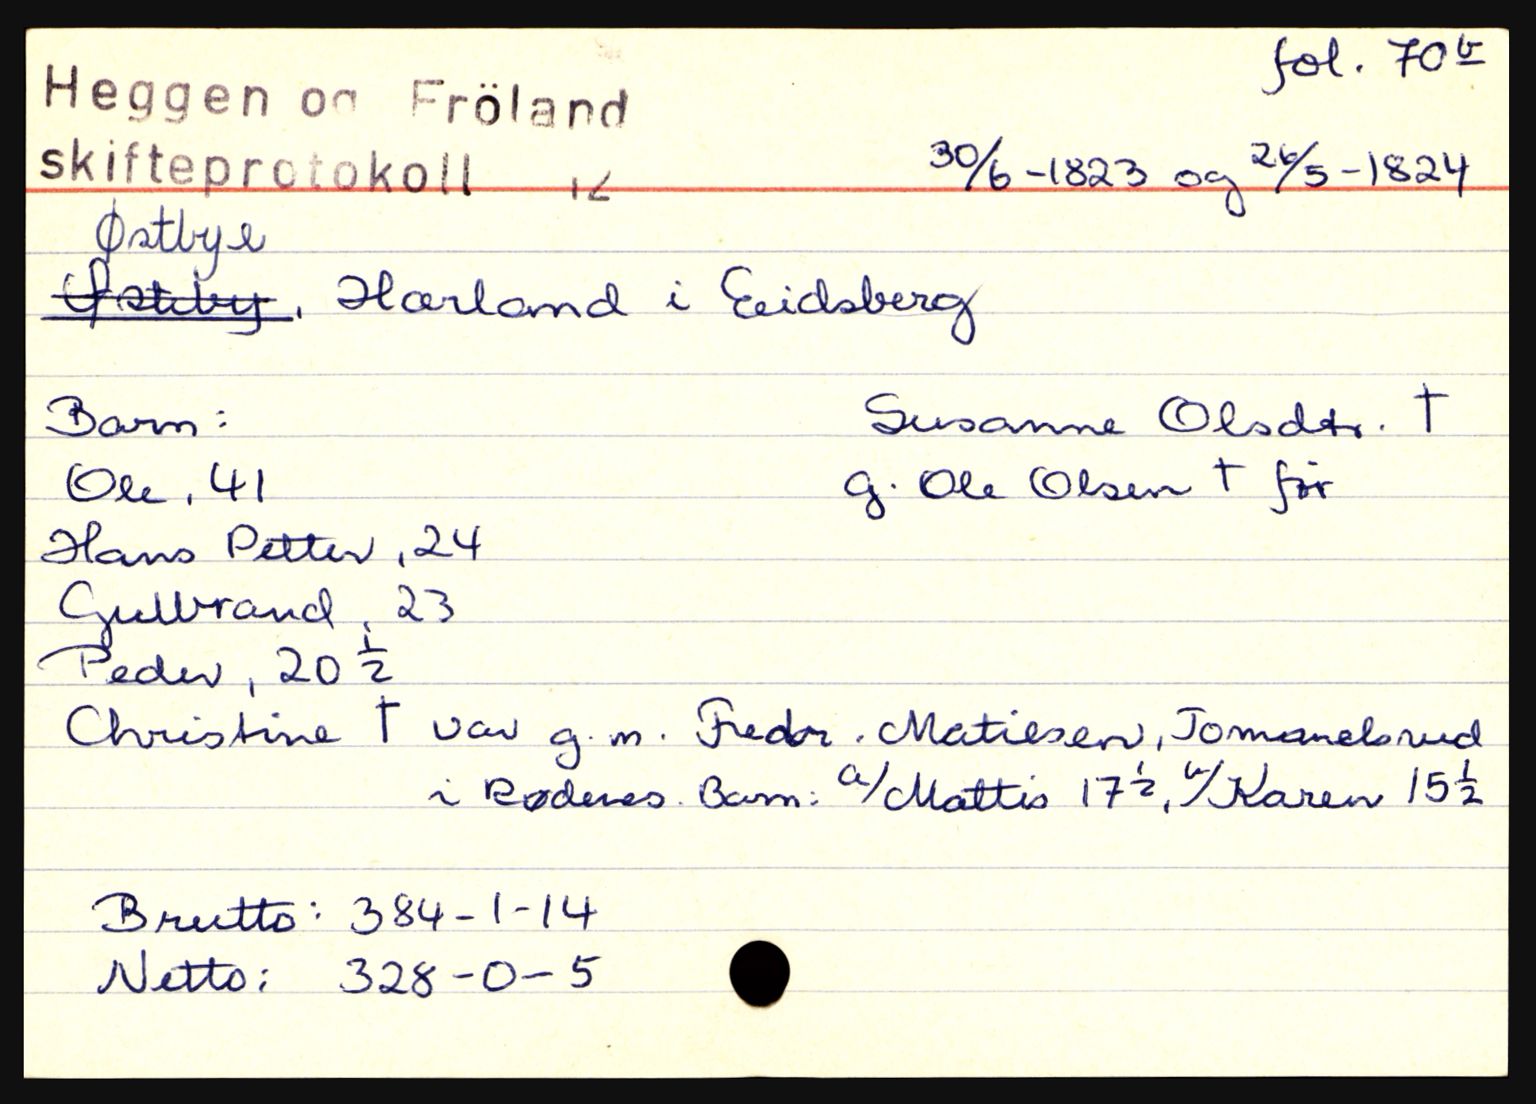 fol. 70b
Heggen og Fröland
skifteprotokoll 12
30/6-1823 og 26/5-1824
Østbye
Østeby, Hærland i Eidsberg
Barn:
Susanne Olsdtr. †
Ole, 41
g. Ole Olsen † før
Hans Petter, 24
Gulbrand, 23
Peder, 20 1/2
Christine † var g.m. Fredr. Matiesen, Tomanelsrud
i Rødenes. Barn: a/Mattis 17 1/2, b/Karen 15 1/2
Brutto: 384-1-14
Netto: 328-0-5